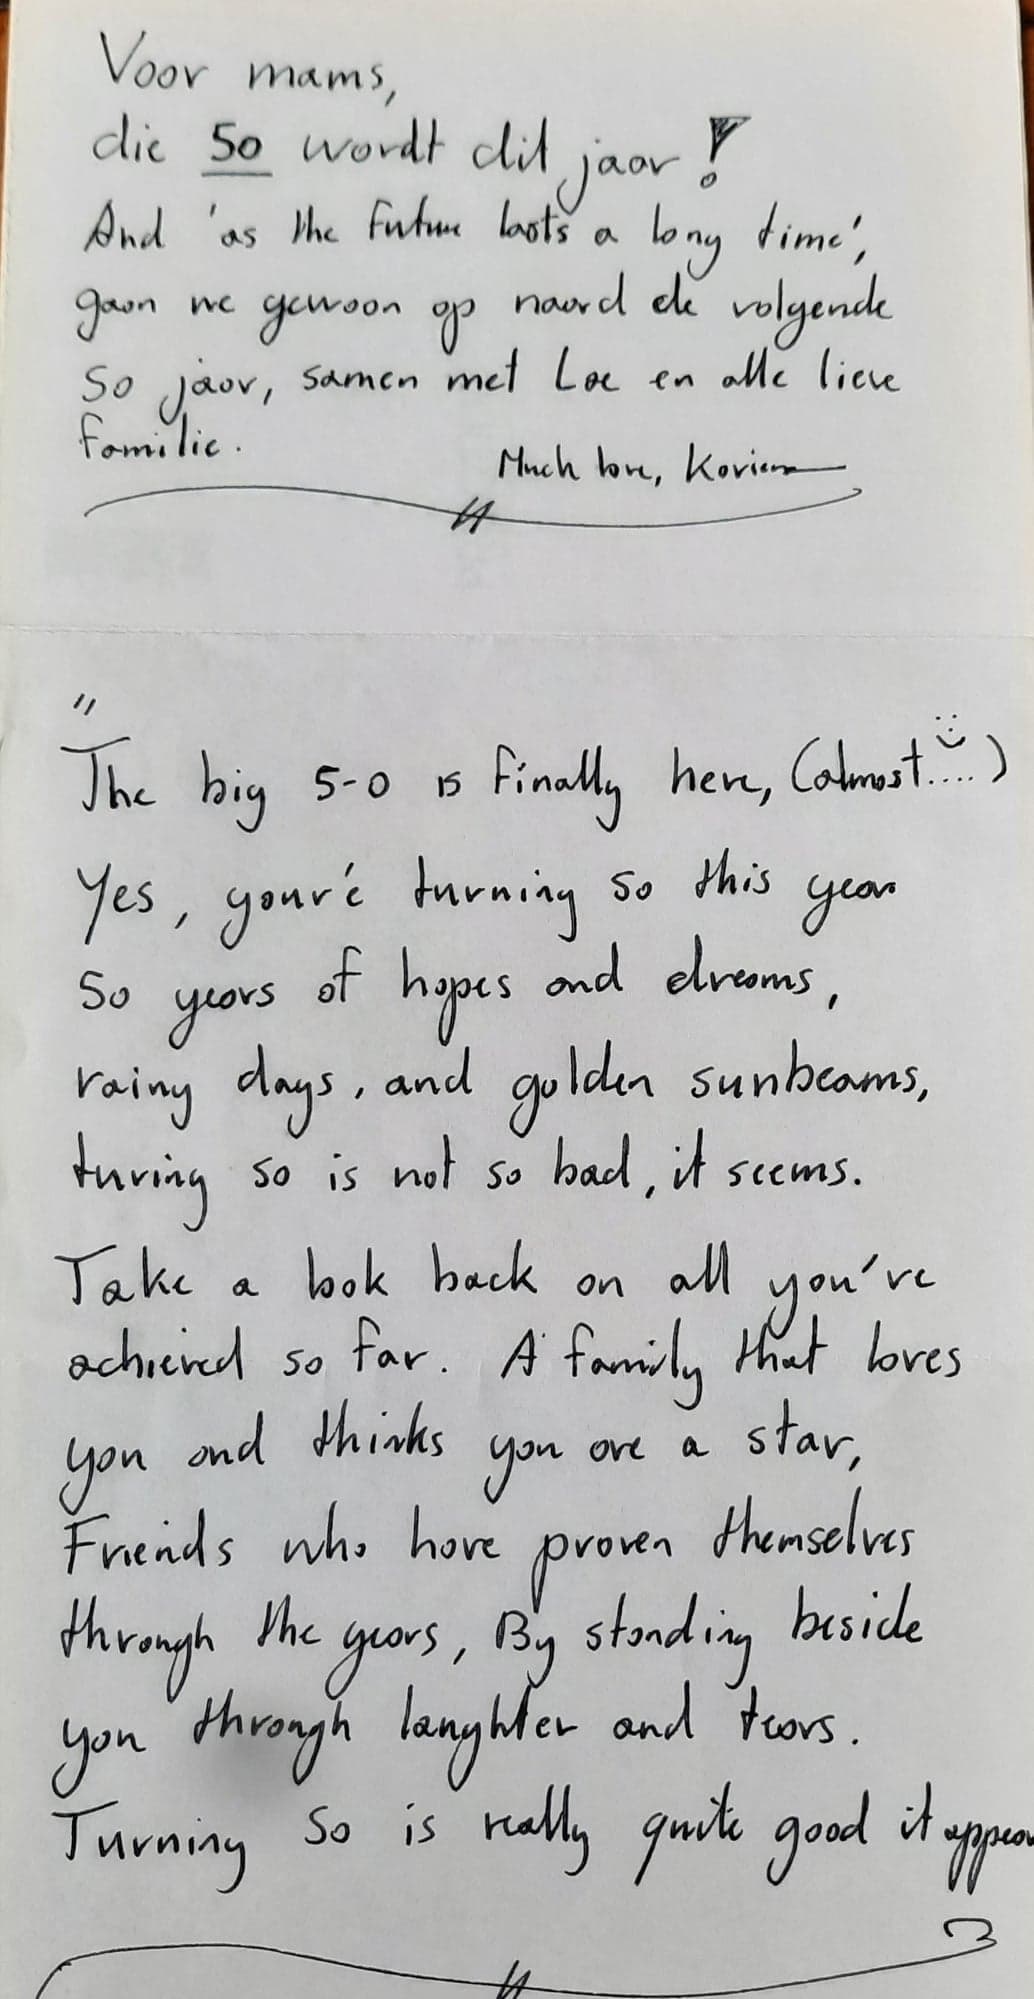 Voor mams,
die 50 wordt dit jaar!
And 'as the future lasts a long time',
gaan we gewoon op naard de volgende
50 jaar, samen met Loe en alle lieve
familie.
Much love,
"
The big 5-0 is finally here, (almost.... )
Yes, your'e turning 50 this year
50 years of hopes and dreams,
rainy days, and golden sunbeams,
turing 50 is not so bad, it seems.
Take a look back on all you've
achieved so far. A family that loves
you and thinks you are a star,
Friends who have proven themselves
through the years, By standing beside
you through laughter and tears.
Turning 50 is really quite good it appear